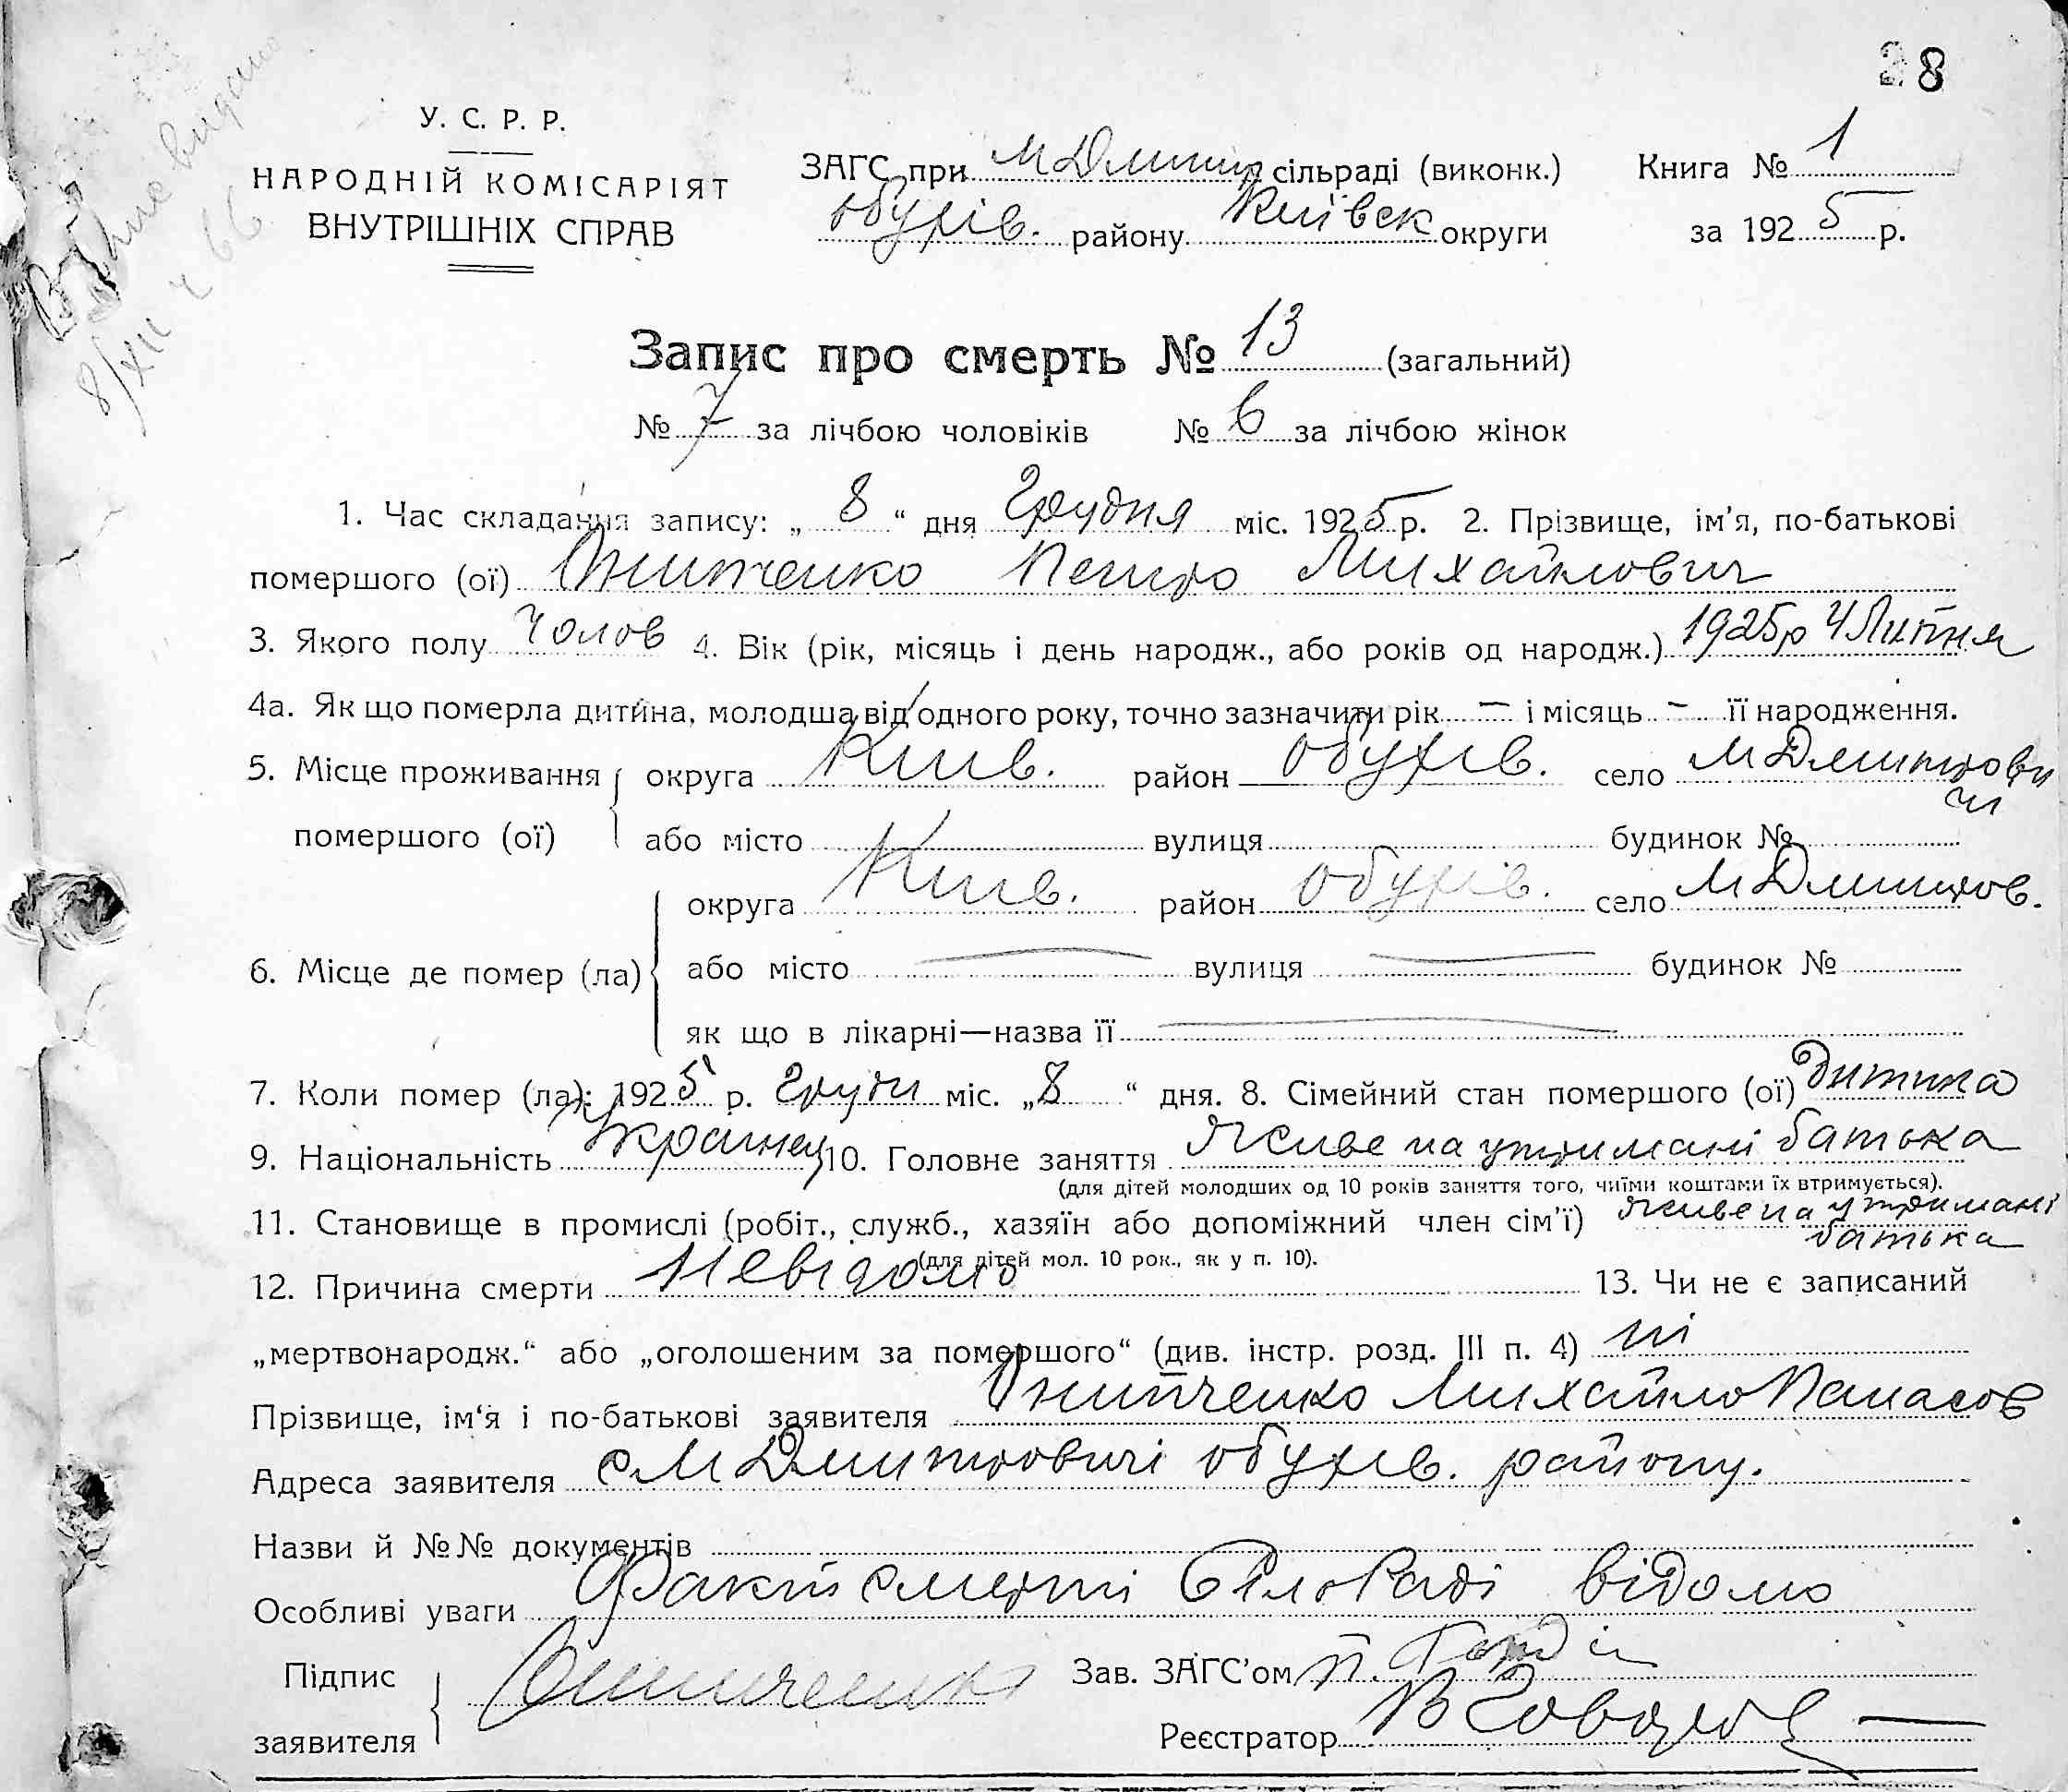 28
У. С. Р. Р.
НАРОДНІЙ КОМІСАРІЯТ
ВНУТРІШНІХ СПРАВ
ЗАГС при М Дмитр сільраді (виконк.) Книга № 1
Обухів. району Київск округи за 1925 р.
8/XII
Запис про смерть № 13 (загальний)
№ 7 за лічбою чоловіків № 6 за лічбою жінок
1. Час складання запису: „ 8 “ дня Грудня міс. 1925 р. 2. Прізвище, ім’я, по-батькові
помершого (ої) Онипченко Петро Михайлович
3. Якого полу Чолов 4. Вік (рік, місяць і день народж., або років од народж.) 1925р 4 Липня
4а. Як що померла дитина, молодша від одного року, точно зазначити рік – і місяць – її народження.
5. Місце проживання округа Київ. район Обухів. село М Дмитрови
чи
помершого (ої) або місто вулиця будинок №
округа Київ. район Обухів. село М Дмитров.
6. Місце де помер (ла) або місто — вулиця — будинок №
як що в лікарні—назва її —
7. Коли помер (ла): 1925 р. Грудн міс. „8 “ дня. 8. Сімейний стан помершого (ої) Дитина
9. Національність Украінец 10. Головне заняття Живе на утримані батька
(для дітей молодших од 10 років заняття того, чиїми коштами їх втримується).
11. Становище в промислі (робіт., служб., хазяїн або допоміжний член сім’ї) Живе на утримані
батька
(для дітей мол. 10 рок., як у п. 10).
12. Причина смерти Невідомо 13. Чи не є записаний
„мертвонародж.“ або „оголошеним за помершого“ (див. інстр. розд. III п. 4) ні
Прізвище, ім‘я і по-батькові заявителя Онипченко Михайло Панасов
Адреса заявителя с М Дмитровичі Обухів. району.
Назви й №№ документів
Особливі уваги Факт смерти СілоРаді відомо
Підпис
заявителя Онипченко Зав. ЗАГС’ом П.
Реєстратор В